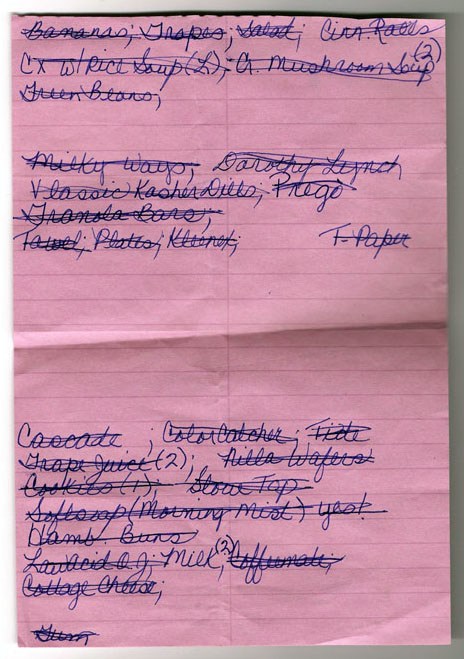 Bananas; Grapes; Salad; Cinn. Rolls
CK w/Rice Soup (2); Cr. Mushroom Soup (2)
Green Beans,
Milky Ways; Dorothy Lynch
Vlassic Kosher Dills; Prego
Granola Bars;
Towel; Plates; Kleenex; T-Paper
Cascade ; Color Catcher; Tide
Grape Juice (2); Nilla Wafers
Cookies (1); Stove Top
Softsoap (Morning Mist) yes!
Hamb. Buns
Low Acid O.J. Milk, (2) Coffeemate;
Cottage Cheese;
Gum,